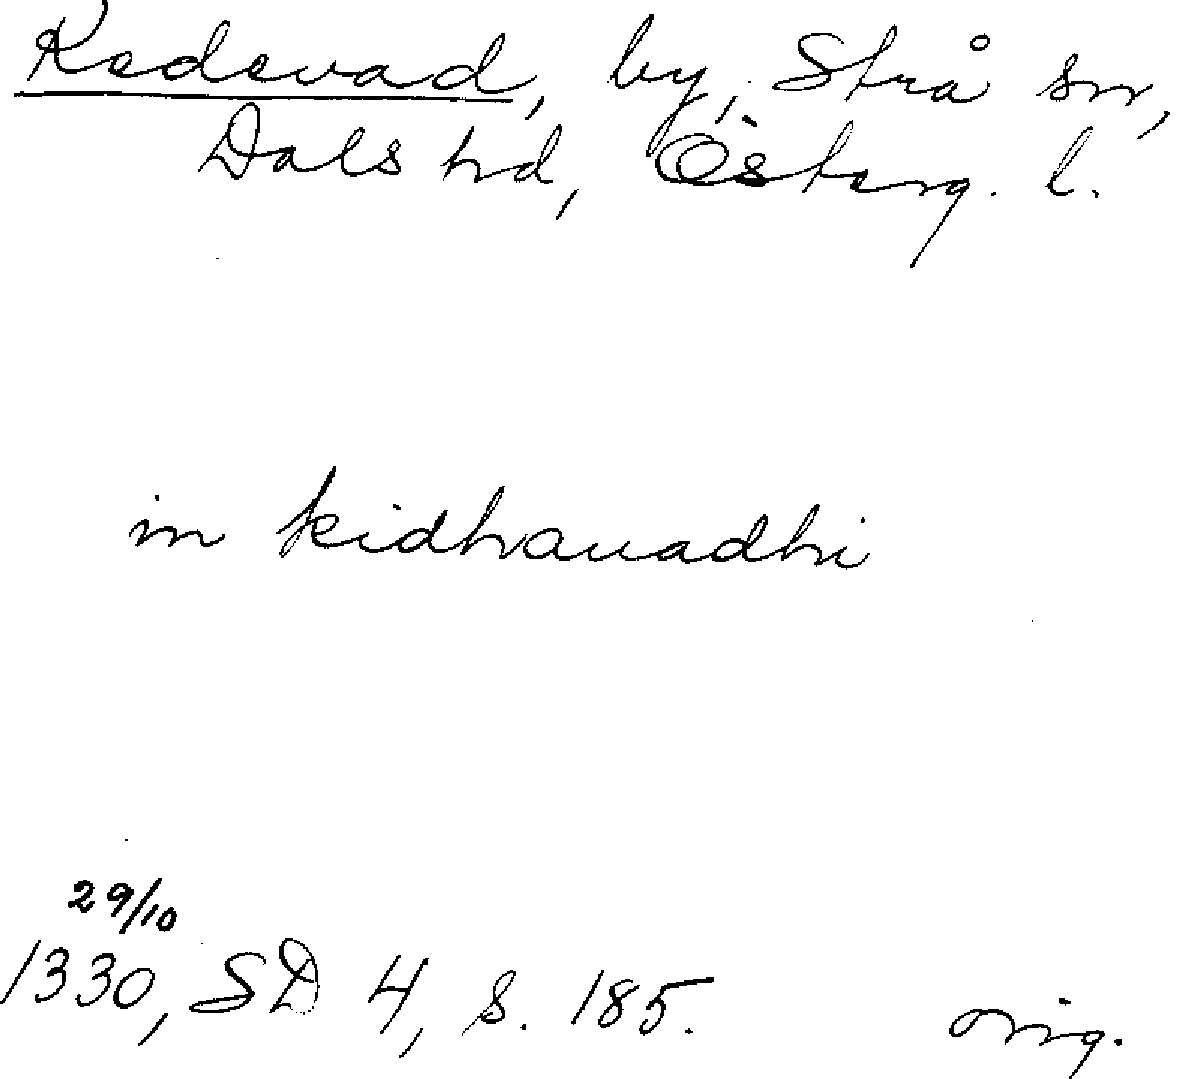 Kedevad, by, Strå sn,
Dals hd, Österg. l.
in kidhauadhi
29/10
1330, SD 4, s. 185. orig.